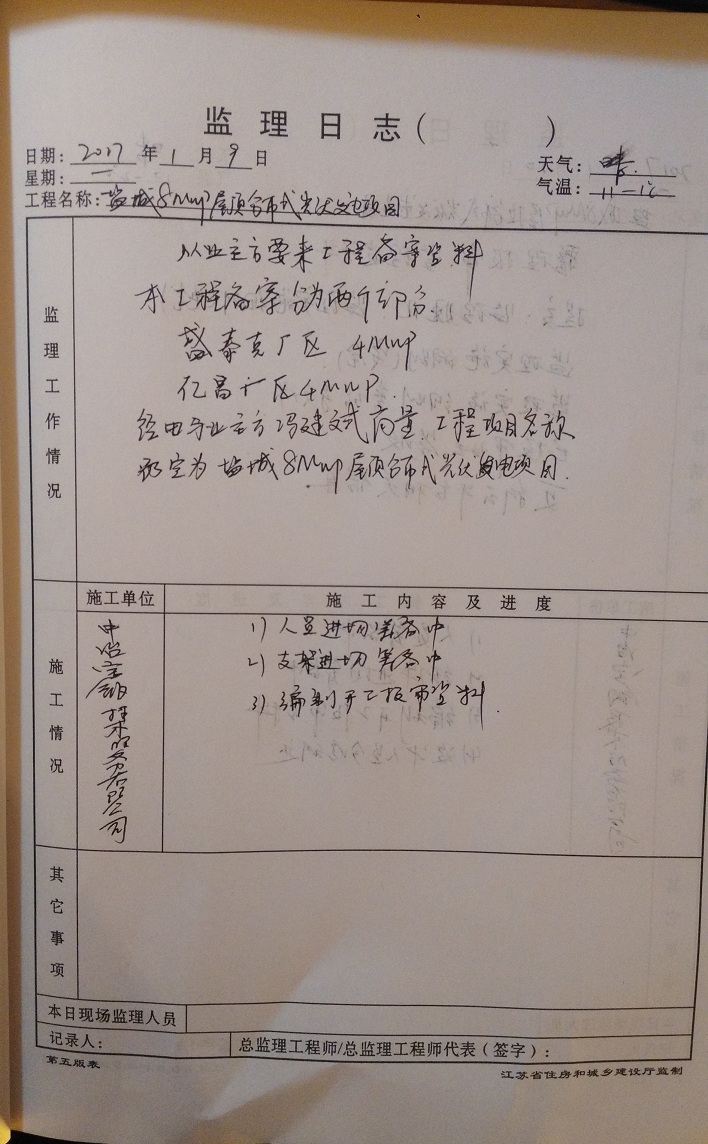 监理日志( )
日期: 2017 年 1 月 9 日
天气: 晴
星期: 一
气温: 11-12
工程名称: 盐城8MWP屋顶分布式光伏发电项目
监理工作情况
从业主方要来工程备案资料
本工程备案分为两个部分.
盛泰克厂区 4MWP
亿昌厂区4MWP.
经与业主方冯建斌商量 工程项目名称
确定为 盐城8MWP屋顶分布式光伏发电项目.
施工情况
施工单位
施工内容及进度
中
公司
1) 人员进场筹备中
2) 支架进场筹备中
3) 编制开工报审资料.
其它事项
本日现场监理人员
记录人:
总监理工程师/总监理工程师代表(签字):
第五版表
江苏省住房和城乡建设厅监制